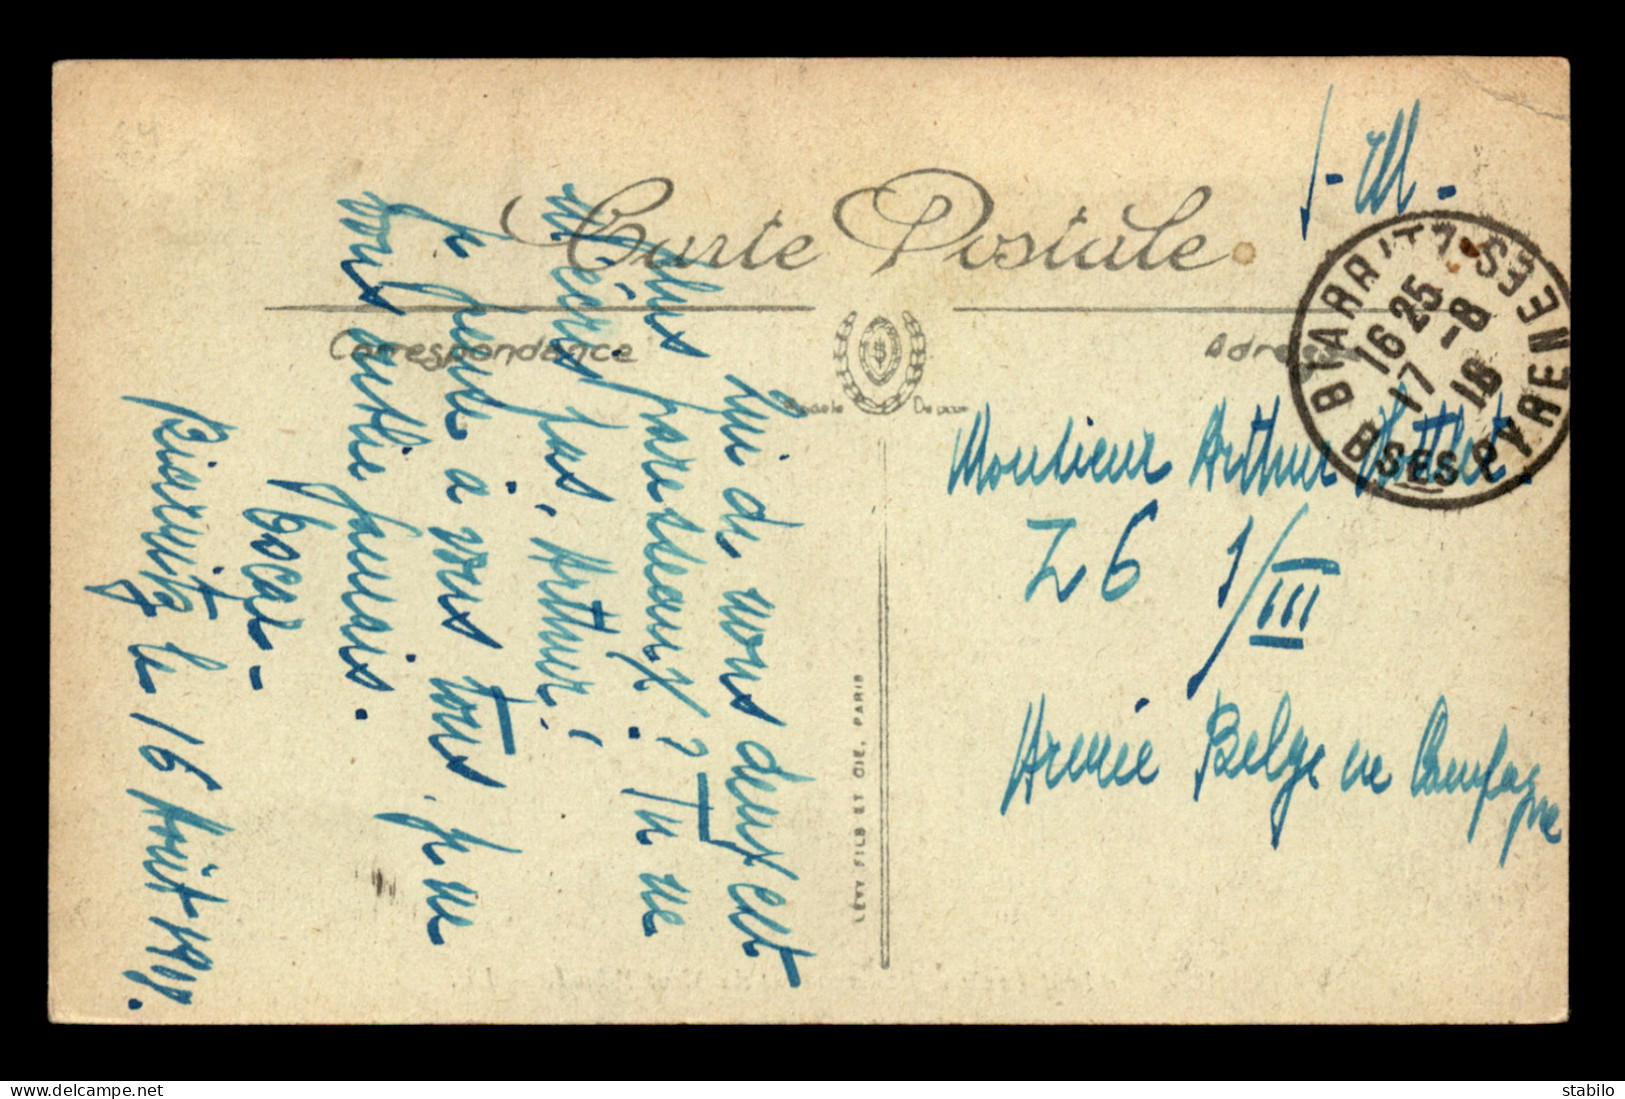 S.M.
Carte Postale
Correspondance
Adresse
BIARRITZ
BSES PYRENEES
16 25
17 - 8
18
Monsieur Arthur
Z 6 1/III
Armée Belge en Campagne
LÉVY FILS ET CIE, PARIS
Biarritz le 16 Août 1918.
Qui de vous deux est
plus paresseux? Tu ne
m'écris pas, Arthur!
Je pense à vous tous, je ne
vous oublie jamais.
Oscar
stabilo